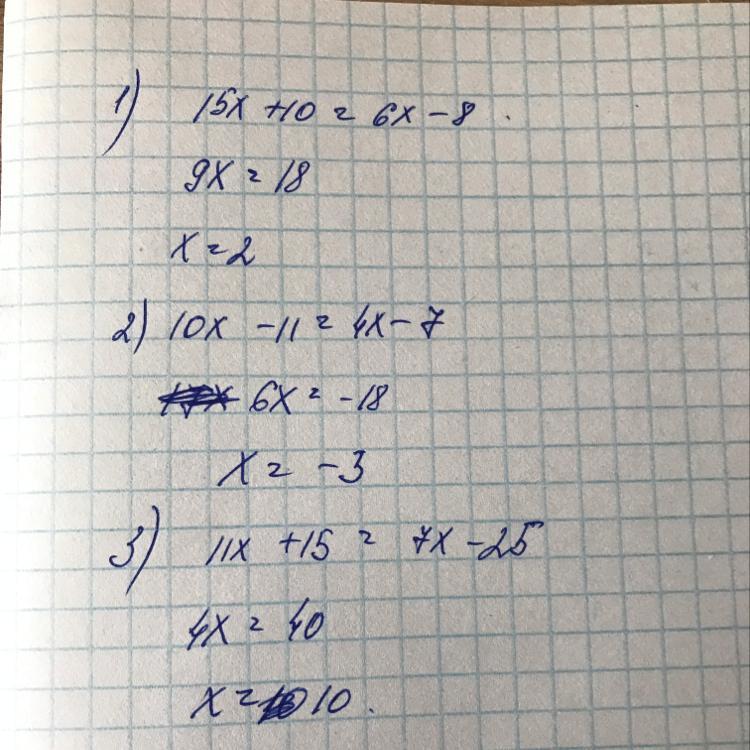 1) 15x +10 = 6x - 8
9x = 18
x = 2
2) 10x - 11 = 4x - 7
6x = -18
x = -3
3) 11x +15 = 7x - 25
4x = 40
x = 10.